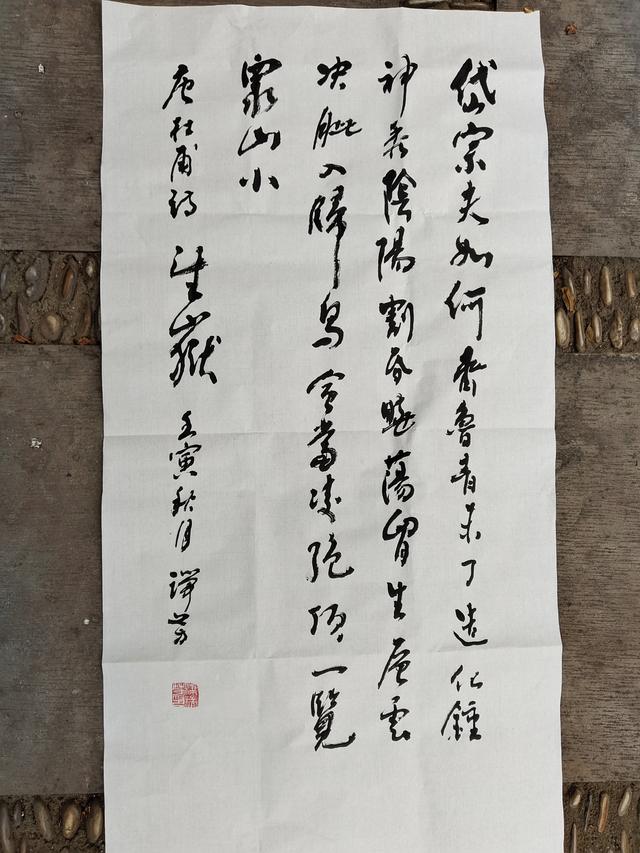 岱宗夫如何齊魯青未了造化鍾
神秀陰陽割昏曉蕩胷生層雲
決眥入歸鳥會當凌絕頂一覽
眾山小
唐杜甫詩望嶽壬寅秋月